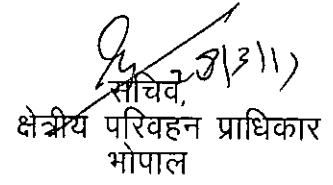 सचिव,
क्षेत्रीय परिवहन प्राधिकार
भोपाल